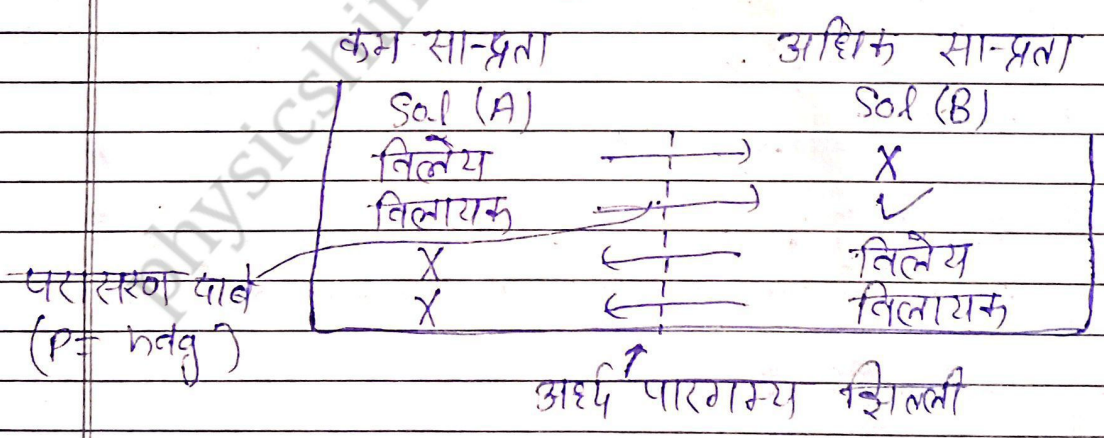 कम सान्द्रता अधिक सान्द्रता
Sol (A) Sol (B)
विलेय X
विलायक ✓
X विलेय
परासरण दाब X विलायक
(P = hdg)
अर्ध्द पारगम्य झिल्ली
physicsshi